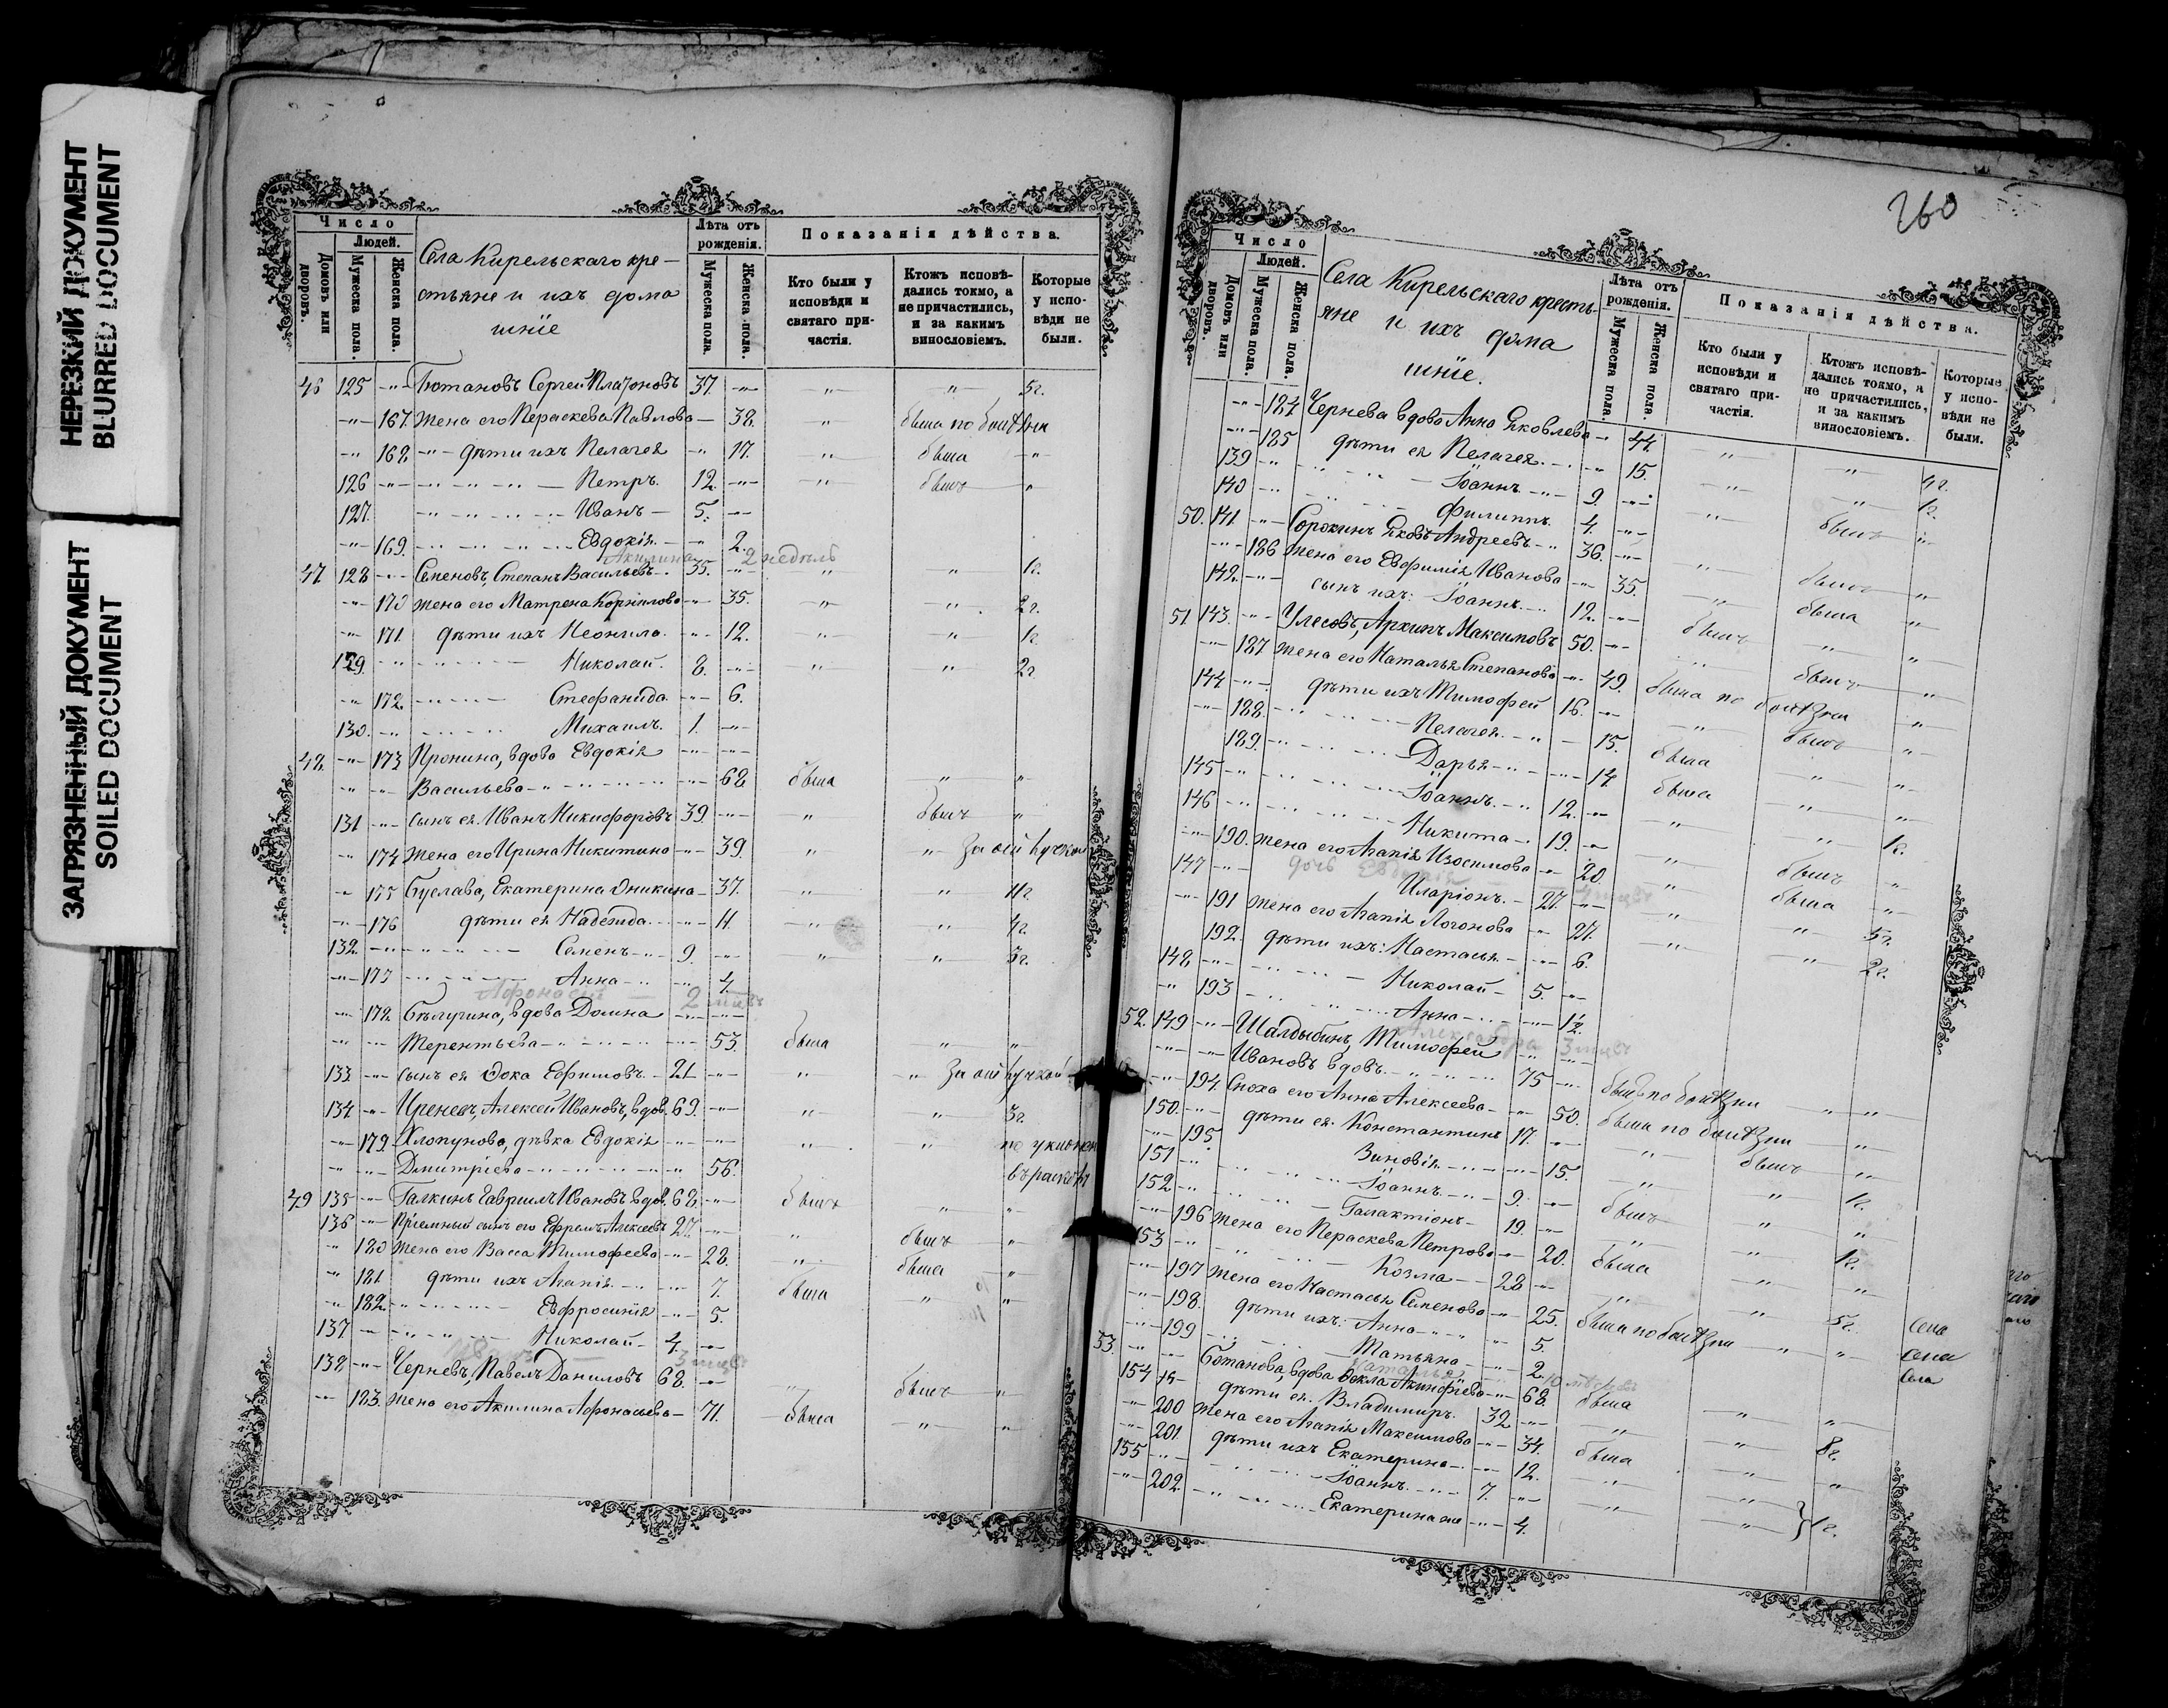 НЕРЕЗКИЙ ДОКУМЕНТ
BLURRED DOCUMENT
ЗАГРЯЗНЕННЫЙ ДОКУМЕНТ
SOILED DOCUMENT
Число
Людей.
Домовъ или дворовъ.
Мужеска пола.
Женска пола.
Села Кирельскаго кре-
стьяне и ихъ дома
шнiе
Лѣта отъ рожденiя.
Мужеска пола.
Женска пола.
Показанiя дѣйства.
Кто были у исповѣди и святаго причастiя.
Ктожъ исповѣдались токмо, а не причастились, и за какимъ винословiемъ.
Которые у исповѣди не были.
46 125 -"- Ботановъ Сергей Платоновъ 37. -"- " " 5г.
-"- 167. жена его Параскева Павлова - 38. " была по болѣзни
-"- 168. -"- дѣти ихъ Пелагея -"- 17. " была -"-
126 -"- Петръ. 12. -"- -"- былъ "
127. Иванъ - 5. -"-
-"- 169. Евдокiя. -"- 2.
Акилина 2 недѣль
47 128 -"- Семеновъ, Степанъ Васильевъ. 35. -"- " -"- 1г.
-"- 170 жена его Матрена Корнилова -"- 35. " -"- 2г.
-"- 171. дѣти ихъ Неонила. -"- 12. " " 1г.
129. -"- Николай. 8. -"- " " 2г
-"- 172. Стефанида. -"- 6.
130. -"- Михаилъ. 1. -"-
48. -"- 173 Пронина, вдова Евдокiя -"- -"-
-"- -"- Васильева -"- 68 была " "
131 -"- сынъ ея. Иванъ Никифоровъ 39. -"- " былъ "
-"- 174 жена его Ирина Никитина -"- 39. " -"-
-"- 175 Буслава, Екатерина - 37. " "
-"- 176 дѣти ея Надежда. -"- 11. -"- " 4г.
132. -"- Семенъ -"- 9. -"- " " 3г.
-"- 177 Анна -"- 4.
2 мцвъ
-"- 178. Бѣлугина, вдова Домна -"- -"-
-"- -"- Терентьева -"- 53. была " "
133. -"- сынъ ея Ѳока Ефимовъ. - 21 -"- " -"-
134. -"- Алексей Ивановъ, вдов. 69. -"- " " 3г.
-"- 179. Хлопунова, дѣвка Евдокiя -"- -"- " "
-"- -"- Дмитрiева -"- 56.
49 135 -"- Галкинъ Гаврiилъ Ивановъ вдов. 68. -"- былъ " "
136 -"- Прiемный сынъ его Ефремъ Алексеевъ 27. -"- " былъ "
-"- 180 жена его Васса Тимофеева -"- 28. " была "
-"- 181. дѣти ихъ Агапiя. -"- 7. была " "
-"- 182. Евфросинiя -"- 5.
137 -"- Николай - 4. -"-
3 мцвъ
138 -"- Черневъ, Павелъ Даниловъ 68. -"- " былъ "
-"- 183. жена его Акилина Афонасьева - 71. была " "
260
Число
Людей.
Домовъ или дворовъ.
Мужеска пола.
Женска пола.
Села Кирельскаго кресть-
яне и ихъ дома
шнiе.
Лѣта отъ рожденiя.
Мужеска пола.
Женска пола.
Показанiя дѣйства.
Кто были у исповѣди и святаго причастiя.
Ктожъ исповѣдались токмо, а не причастились, и за какимъ винословiемъ.
Которые у исповѣди не были.
-"- 184 Чернева вдова Анна Яковлева - 44. " " 4г.
-"- 185 дѣти ея Пелагея. -"- 15. -"- " 1г.
139 -"- Iоаннъ. -"- 9. -"- " былъ "
140 -"- Филиппъ. 4. -"-
50. 141. -"- Сорокинъ Яковъ Андреевъ -"- 36. -"- " былъ "
-"- 186 жена его Евфимiя Иванова -"- 35. " была "
142. -"- сынъ ихъ: Iоаннъ. -"- 12. -"- былъ " "
51 143. -"- Улесовъ, Архипъ Максимовъ 50. -"- " былъ "
-"- 187 жена его Наталья Степанова -"- 49. была по болѣзни "
144 -"- дѣти ихъ Тимофей 16. -"- " былъ "
-"- 188. Пелагея. -"- 15. была " "
189. Дарья -"- 14 была " "
145 -"- Iоаннъ. -"- 12. -"- " " 1г.
146 -"- Никита -"- 19. -"- " былъ "
-"- 190. жена его Агапiя Изосимова -"- 20. " была "
дочь
147 -"- Иларiонъ. - 27. -"- " " 5г.
-"- 191 жена его Агапiя Логонова -"- 27. " " 2г.
192. дѣти ихъ: Настасья. -"- 6.
148. -"- Николай - 5. -"-
-"- 193 Анна -"- 1½
Александра 3 мцвъ
52. 149 -"- Шалдыбинъ, Тимофей -"-
-"- -"- Ивановъ вдовъ. -"- 75 -"- былъ по болѣзни " "
-"- 194. Сноха его Анна Алексеева - 50. была по болѣзни "
150. -"- дѣти ея. Константинъ 17. -"- " былъ "
-"- 195. Зиновiя -"- 15. " " 1г.
151 -"- Iоаннъ. -"- 9. -"- былъ " "
152 -"- Галактiонъ - 19. -"- " " 1г.
-"- 196 жена его Параскева Петрова -"- 20. была " "
153 -"- Козма - 28 -"- " " 5г.
-"- 197 жена его Настасья Семенова -"- 25. была по болѣзни " "
-"- 198. дѣти ихъ: Анна -"- 5.
-"- 199 Татьяна -"- 2.
Наталья 10 мѣсяцъ
53. -"- -"- Ботанова, вдова Ѳекла Акинфiева -"- 68. была " "
154 -"- дѣти ея. Владимиръ. 32 -"- " " 8г.
-"- 200 жена его Агапiя Максимова -"- 34. была " "
-"- 201. дѣти ихъ Екатерина -"- 12. " "
155 -"- Iоаннъ. -"- 7. -"- " " } 1г.
-"- 202. Екатерина же -"- 4.